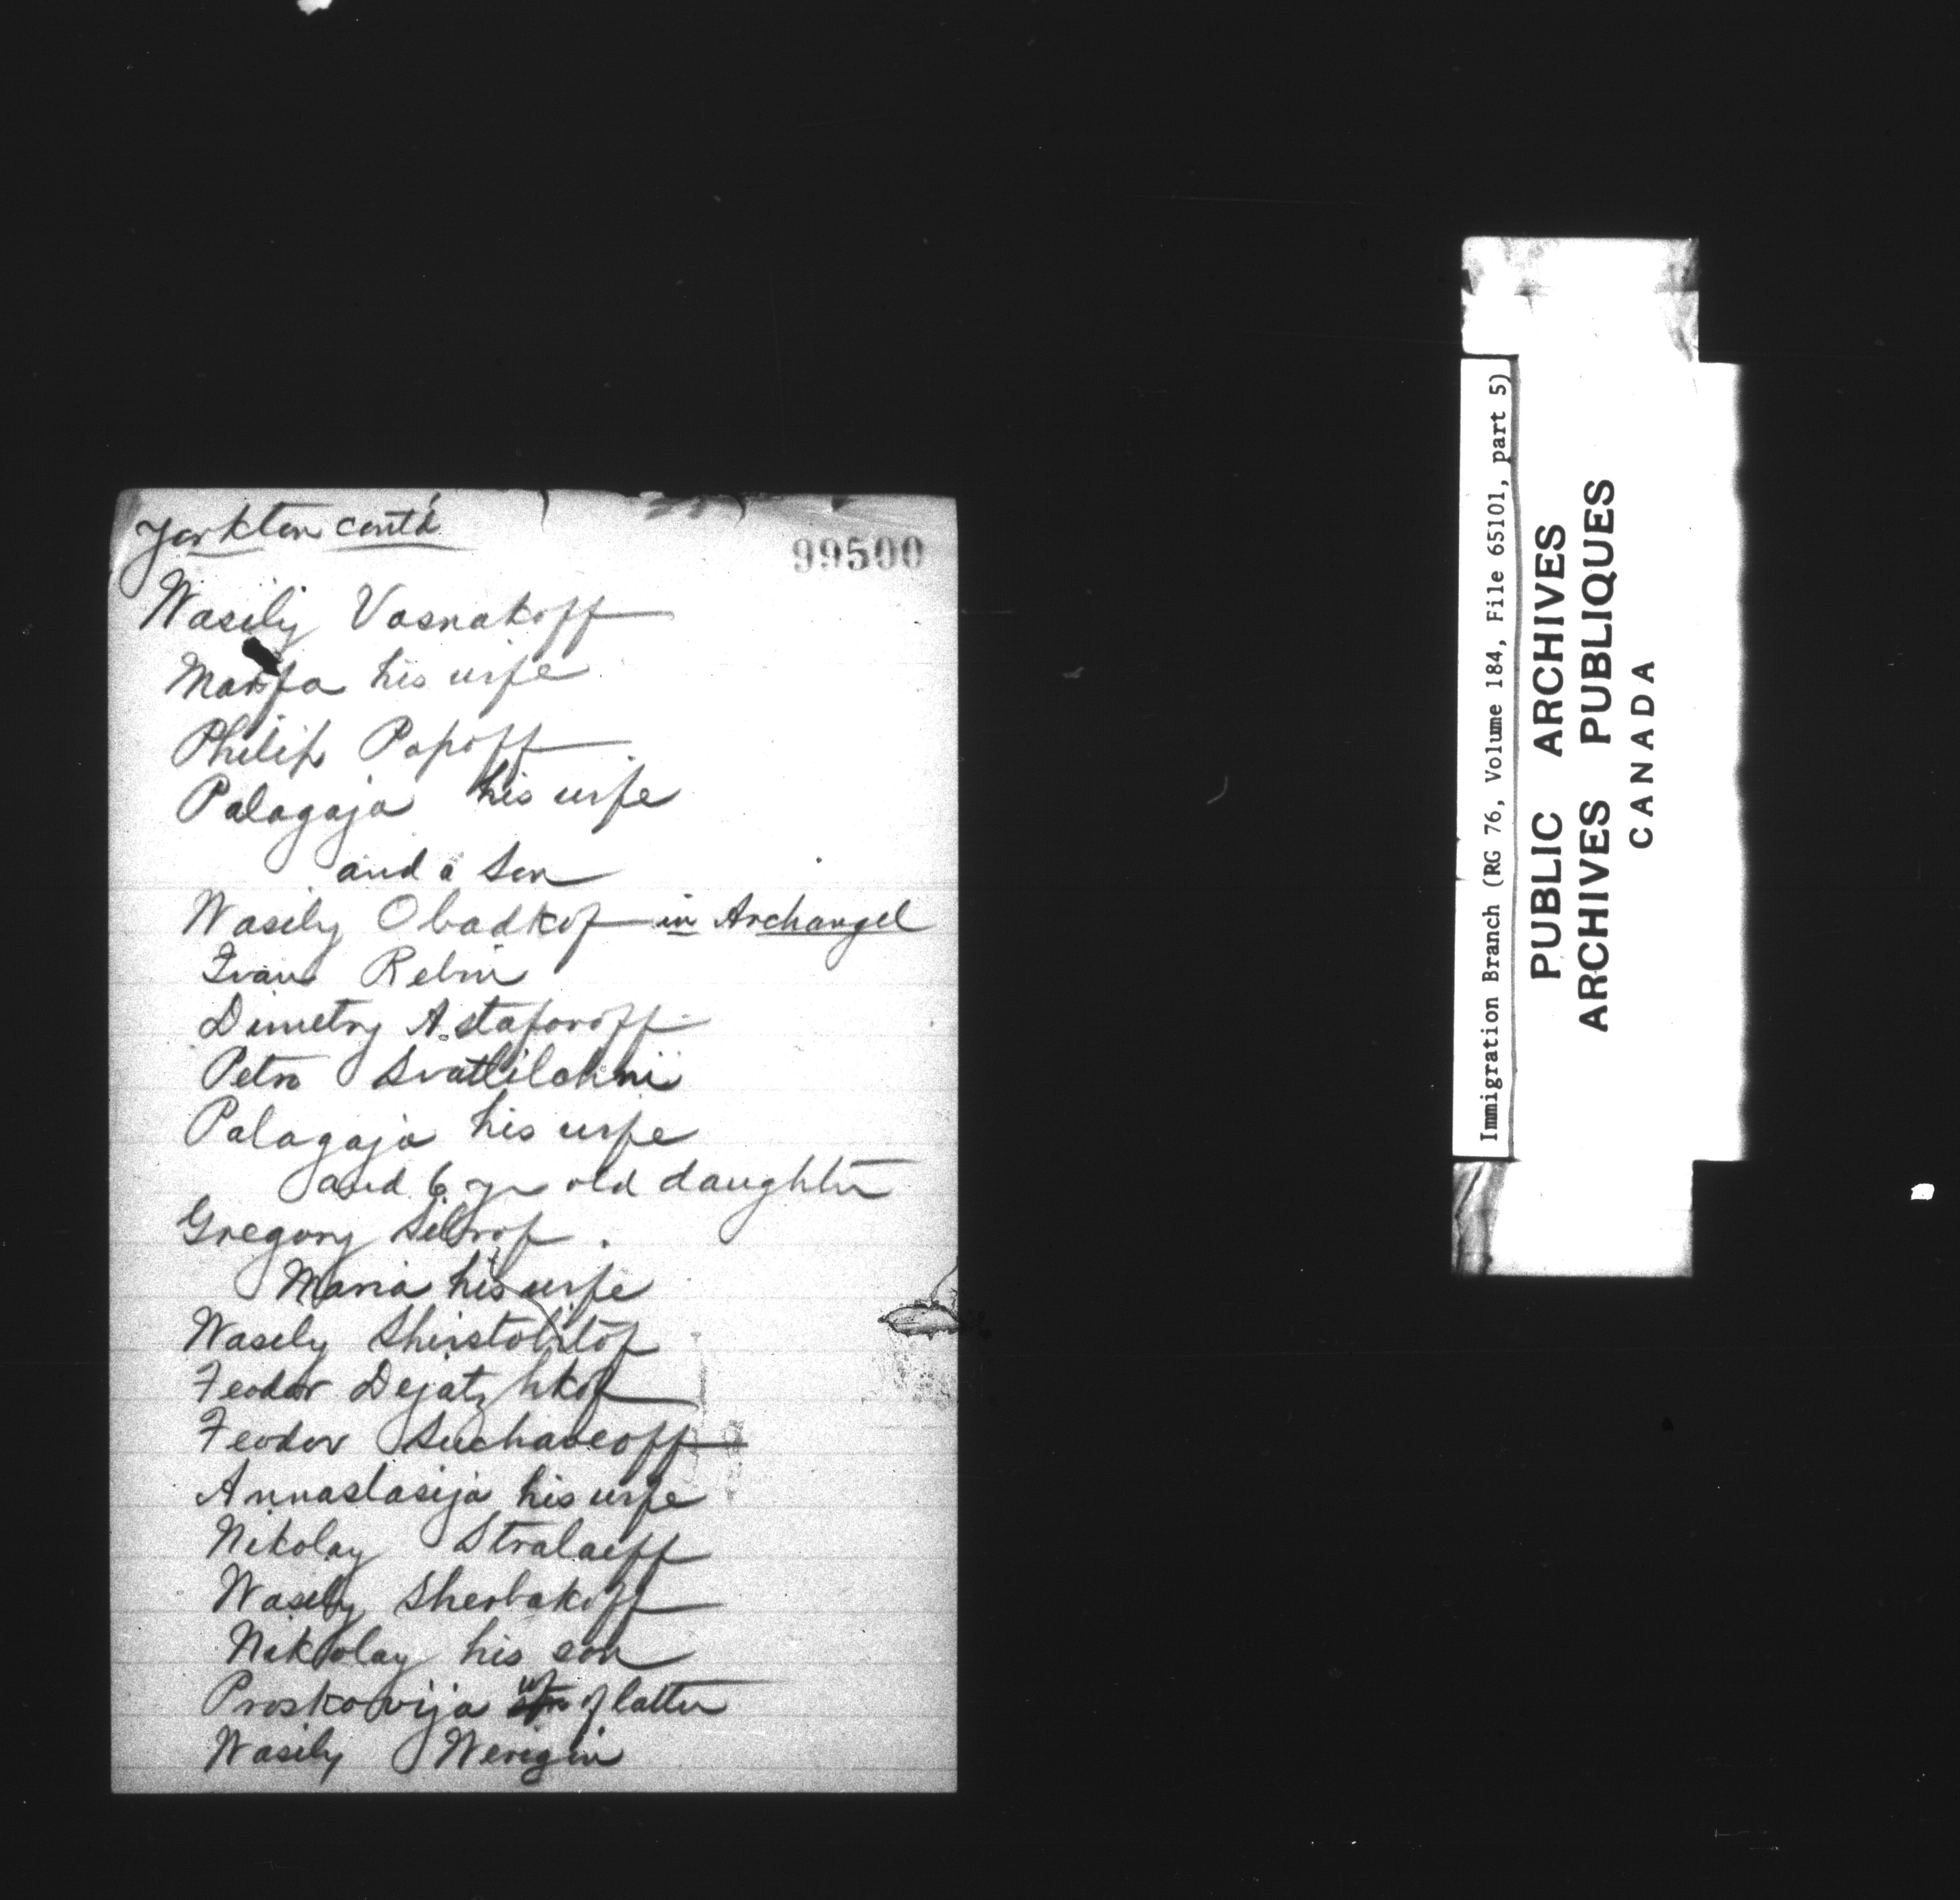 Yorkton cont'd
99500
Wasily Vasnakoff
Marfa his wife
Philip Popoff
Palagaja his wife
and a son
Wasily Obadkof in Archangel
Ivan Rebin
Dimetry Astaforoff
Petro
Palagaja his wife
and 6 yr old daughter
Gregory
Maria his wife
Wasily Shirstobitof
Feodor
Feodor Suchaseoff
Annastasija his wife
Nikolay Stralaeff
Wasily Sherbakoff
Nikolay his son
Proskovija wf of latter
Wasily Werigin
Immigration Branch (RG 76, Volume 184, File 65101, part 5)
PUBLIC ARCHIVES
ARCHIVES PUBLIQUES
CANADA